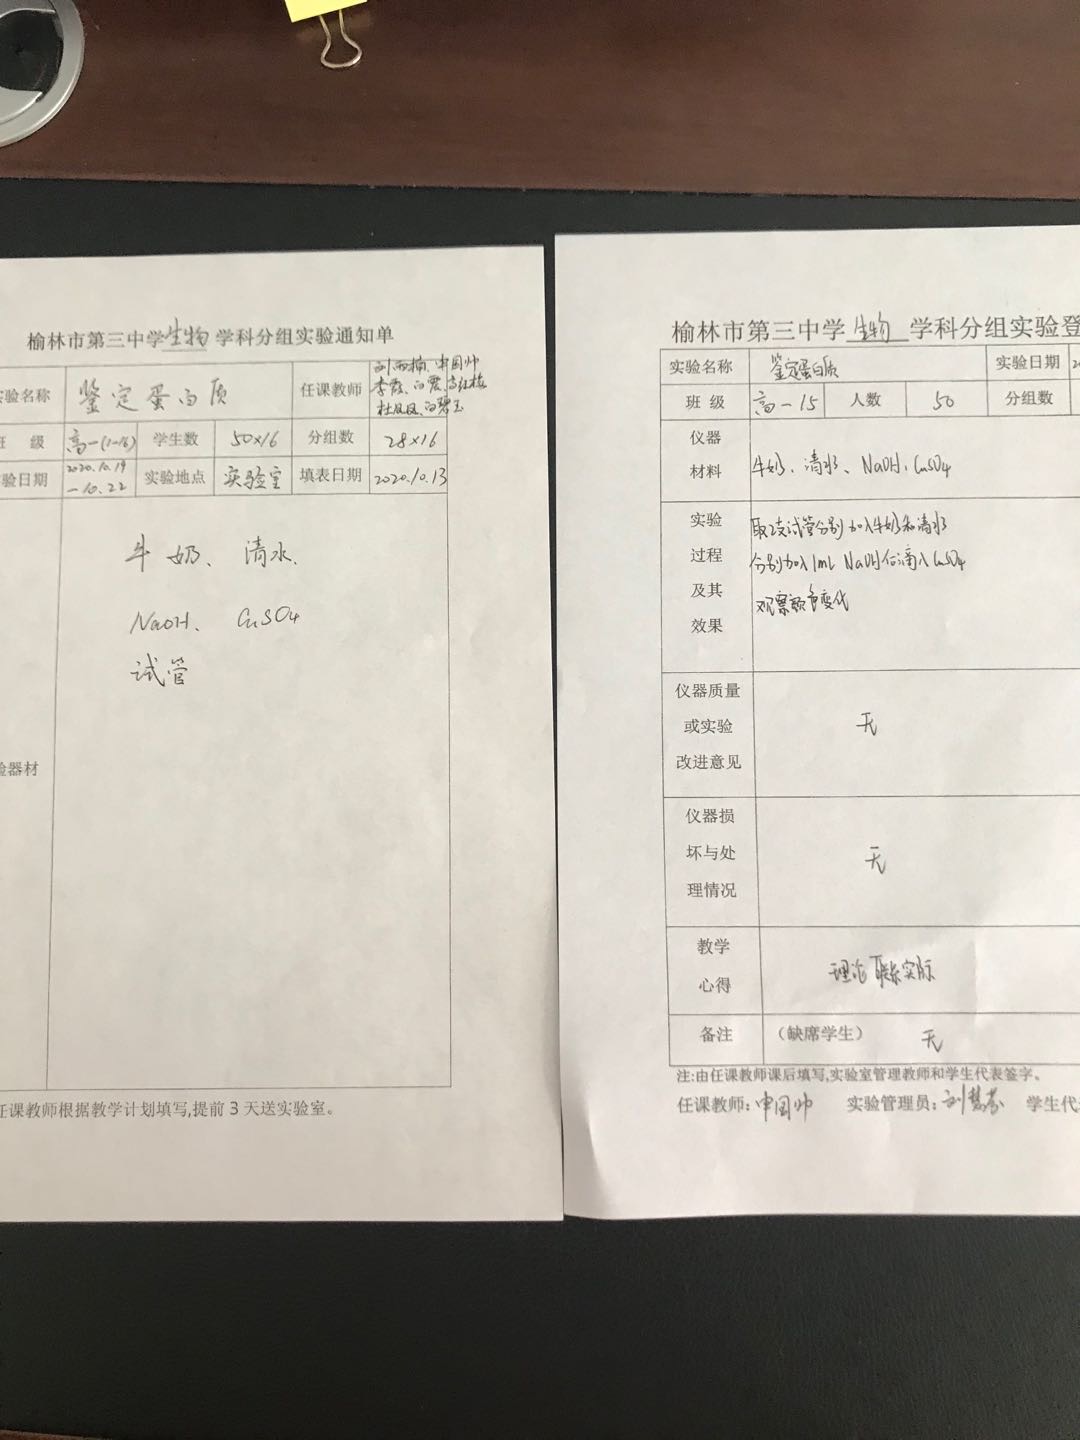 榆林市第三中学生物学科分组实验通知单
验名称 鉴定蛋白质 任课教师
李霞、白霞、
杜凤凤、白碧玉
级 高一(1-16) 学生数 50×16 分组数 28×16
验日期 2020.10.19 —10.22 实验地点 实验室 填表日期 2020.10.13
器材
牛奶、清水、
NaOH、CuSO4
试管
任课教师根据教学计划填写,提前3天送实验室。
榆林市第三中学生物学科分组实验登
实验名称 鉴定蛋白质 实验日期
班级 高一15 人数 50 分组数
仪器
材料
牛奶、清水、NaOH、CuSO4
实验
过程
及其
效果
取2支试管分别加入牛奶和清水
分别加入1mL NaOH后滴入CuSO4
观察颜色变化
仪器质量
或实验
改进意见
无
仪器损
坏与处
理情况
无
教学
心得
理论联系实际
备注 (缺席学生) 无
注:由任课教师课后填写,实验室管理教师和学生代表签字。
任课教师:申国帅 实验管理员:刘慧芬 学生代